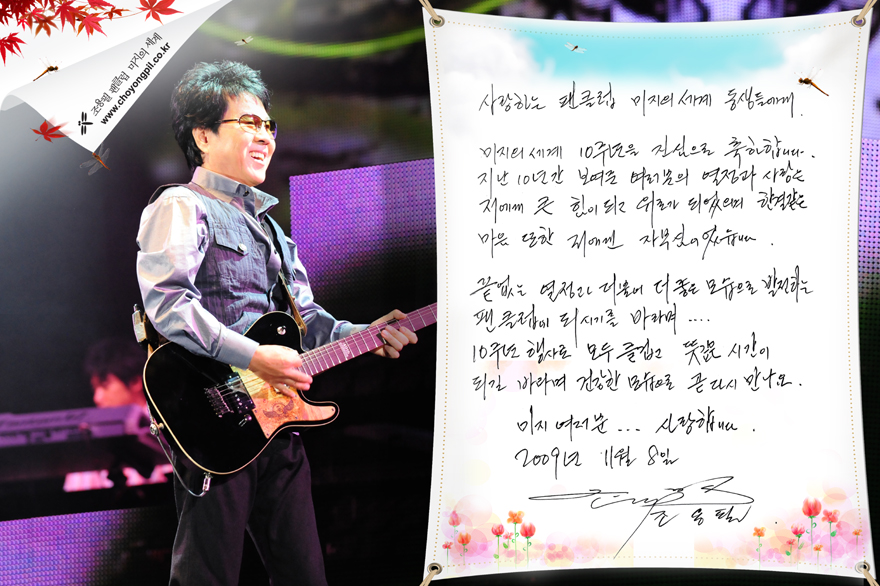 조용필 팬클럽 미지의 세계
www.choyongpil.co.kr
사랑하는 팬클럽 미지의세계 동생들에게.
미지의세계 10주년을 진심으로 축하합니다.
지난 10년간 보여준 여러분의 열정과 사랑은
저에게 큰 힘이되고 위로가 되었으며 한결같은
마음 또한 저에겐 자부심이었습니다.
끝없는 열정과 더불어 더 좋은 모습으로 발전하는
팬클럽이 되시기를 바라며 ....
10주년 행사로 모두 즐겁고 뜻깊은 시간이
되길 바라며 건강한 모습으로 곧 다시 만나요.
미지 여러분 ... 사랑합니다.
2009년 11월 8일
조용필